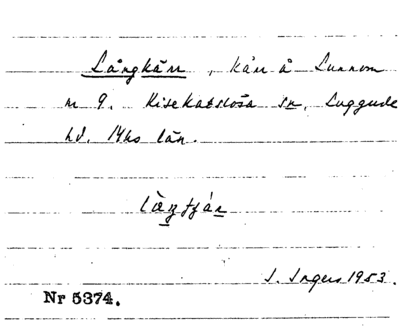 Långkärr, kärr å Lunnom
nr 9. Kisekatslösa sn, Luggude
hd. Mhs län.
làŋtjár
I. Ingers 1953.
Nr 5374.